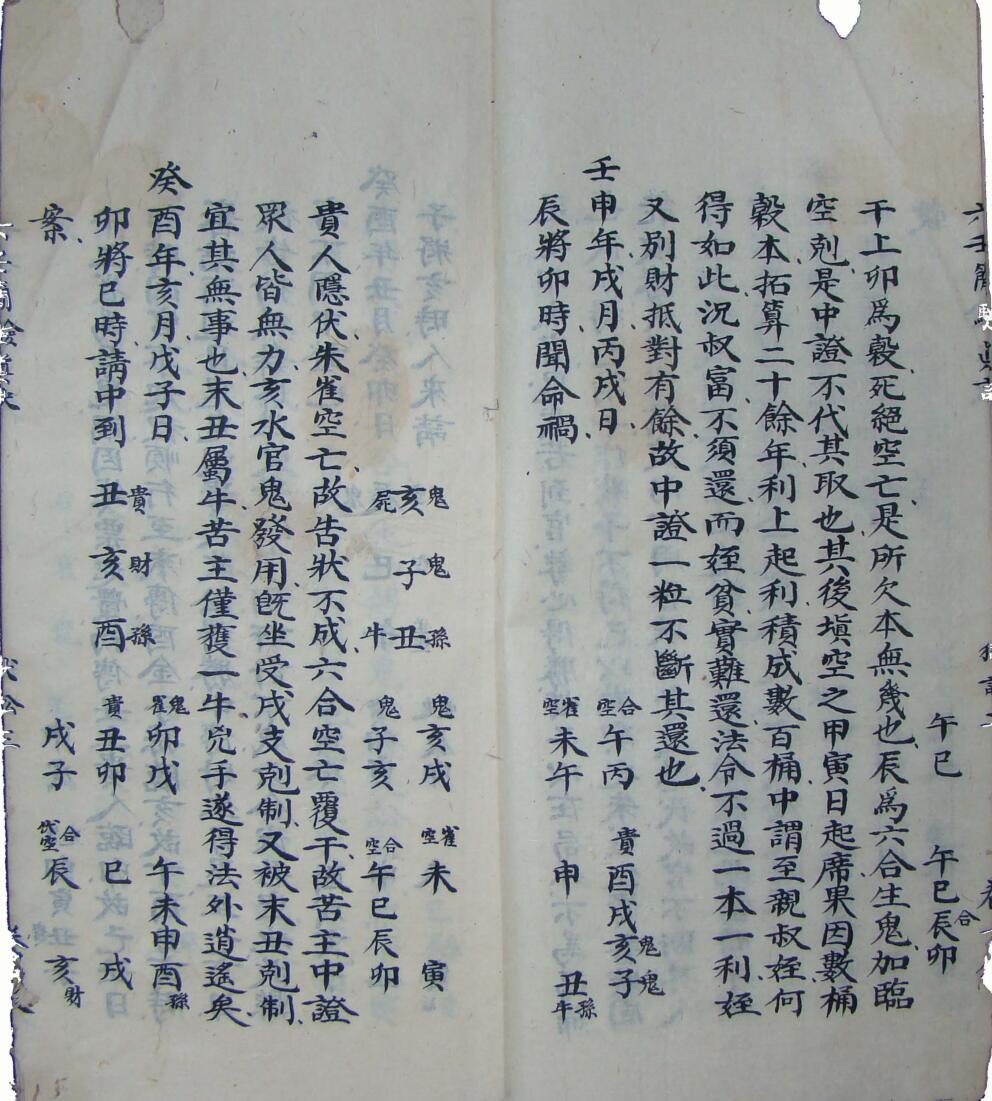 午巳 午巳辰卯 合
干上卯爲穀死絕空亡是所欠本無幾也辰爲六合生鬼加臨
空剋是中證不代其取也其後塡空之甲寅日起席果因數桶
穀本拓算二十餘年利上起利積成數百桶中謂至親叔姪何
得如此況叔富不須還而姪貧實難還法令不過一本一利姪
又別財抵對有餘故中證一粒不斷其還也
壬申年戌月丙戌日 合空 午丙 貴酉戌亥鬼子鬼
辰將卯時聞命禍 雀空 未午 申 丑孫牛
鬼亥 鬼子 孫丑牛 鬼亥戌 雀空未 寅
鬼子亥 合空午巳辰卯
貴人隱伏朱雀空亡故告狀不成六合空亡覆干故苦主中證
眾人皆無力亥水官鬼發用旣坐受戌支剋制又被末丑剋制
宜其無事也末丑屬牛苦主僅獲一牛兇手遂得法外逍遙矣
癸酉年亥月戊子日 鬼雀卯戊 午未申酉孫
卯將巳時請中到 丑貴 亥財 酉孫 貴丑卯 巳戌
案 戌子 合空辰 亥財